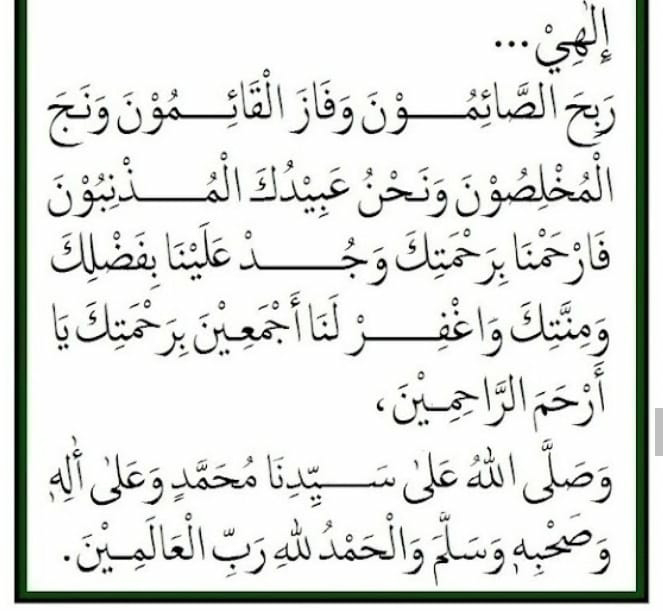 إِلٰهِيْ ...
رَبِحَ الصَّائِمُــــوْنَ وَفَازَ الْقَائِــــمُوْنَ وَنَجَ
الْمُخْلِصُوْنَ وَنَحْنُ عَبِيْدُكَ الْمُــــذْنِبُوْنَ
فَارْحَمْنَا بِرَحْمَتِكَ وَجُــــدْ عَلَيْنَا بِفَضْلِكَ
وَمِنَّتِكَ وَاغْفِــــرْ لَنَا أَجْمَعِيْنَ بِرَحْمَتِكَ يَا
أَرْحَمَ الرَّاحِمِــيْنَ،
وَصَلَّى اللهُ عَلىٰ سَــــيِّدِنَا مُحَمَّدٍ وَعَلىٰ أٰلِهٖ
وَصَحْبِهٖ وَسَلَّمَ وَالْحَمْدُ لِلهِ رَبِّ الْعَالَمِــيْنَ.